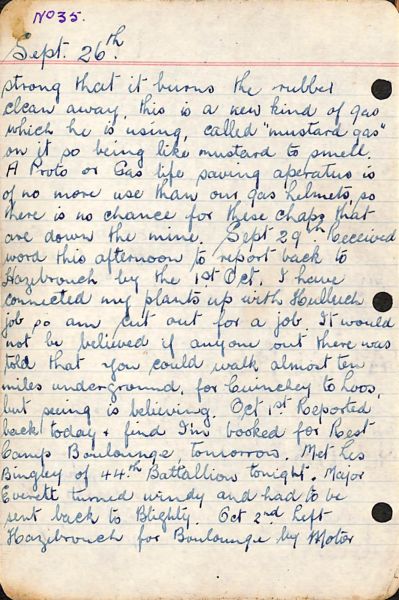 No 35.
Sept. 26th.
strong that it burns the rubber
clean away, this is a new kind of gas
which he is using, called "mustard gas"
on it so being like mustard to smell.
A Proto or Gas life saving aperatus is
of no more use than our gas helmets, so
there is no chance for these chaps that
are down the mine. Sept 29th. Received
word this afternoon to report back to
Hazibrouch by the 1st Oct. I have
connected my plants up with Hulluch
job so am cut out for a job. It would
not be believed if anyone out there was
told that you could walk almost ten
miles underground, for Cuinchey to Loos,
but seeing is believing. Oct 1st Reported
back today & find I'm booked for Rest
Camp Boulounge, tomorrow. Met Les
Bingley of 44th Battallion tonight. Major
Everett turned windy and had to be
sent back to Blighty. Oct 2nd Left
Hazibrouch for Boulounge by Motor